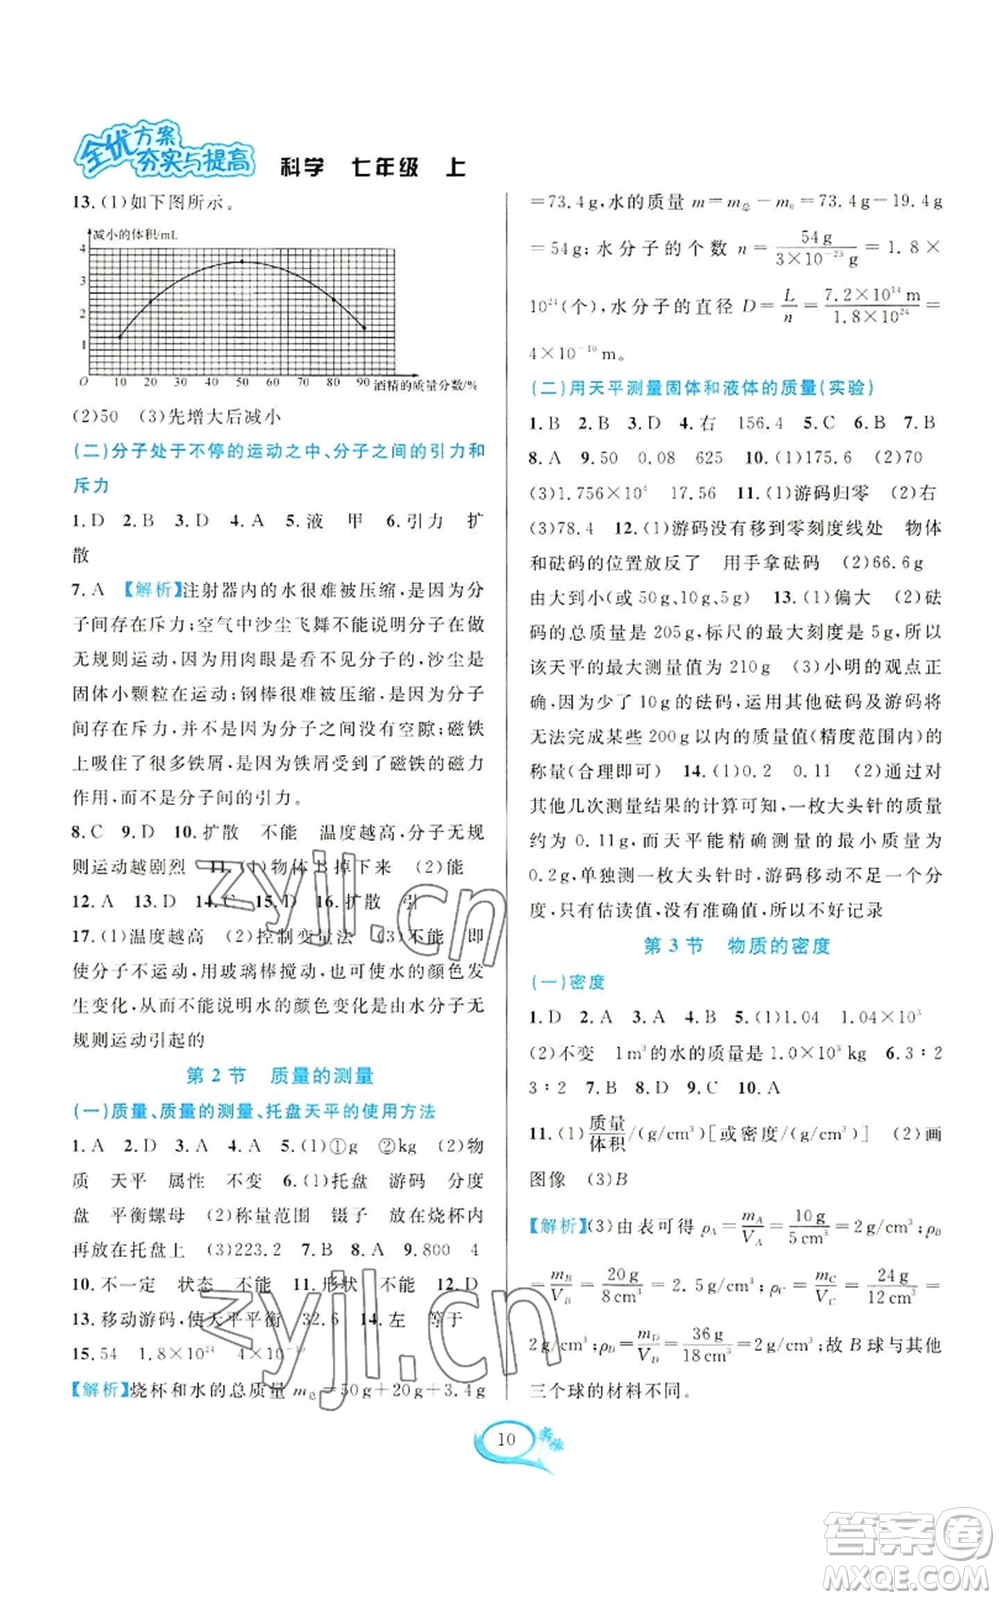 全优方案
夯实与提高 科学 七年级 上
13. (1)如下图所示。
减小的体积/mL
4
3
2
1
O 10 20 30 40 50 60 70 80 90 酒精的质量分数/%
(2)50 (3)先增大后减小
(二)分子处于不停的运动之中、分子之间的引力和
斥力
1. D 2. B 3. D 4. A 5. 液 甲 6. 引力 扩
散
7. A 【解析】注射器内的水很难被压缩,是因为分
子间存在斥力;空气中沙尘飞舞不能说明分子在做
无规则运动,因为用肉眼是看不见分子的,沙尘是
固体小颗粒在运动;钢棒很难被压缩,是因为分子
间存在斥力,不是因为分子之间没有空隙;磁铁
上吸住了很多铁屑,是因为铁屑受到了磁铁的磁力
作用,而不是分子间的引力。
8. C 9. D 10. 扩散 不能 温度越高,分子无规
则运动越剧烈 11. (1)物体B掉下来 (2)能
12. A 13. D 14. C 15. D 16. 扩散 引
17. (1)温度越高 (2)控制变量法 (3)不能 即
使没有扩散,用玻璃棒搅动,水的颜色也会
发生变化,从而不能说明水的颜色变化是由水分子无
规则运动引起的
第 2 节 质量的测量
(一)质量、质量的测量、托盘天平的使用方法
1. A 2. D 3. A 4. B 5. (1)①g ②kg (2)物
质 天平 属性 不变 6. (1)托盘 游码 分度
盘 平衡螺母 (2)称量范围 镊子 放在烧杯内
再放在托盘上 (3)223.2 7. B 8. B 9. 800 4
10. 不一定 状态 不能 11. 形状 不能 12. D
13. 移动游码,使天平平衡 32.6 14. 左 等于
15. 54 1.8×10²⁴ 4×10⁻¹⁰
【解析】烧杯和水的总质量 m总=50 g+20 g+3.4 g
=73.4 g,水的质量 m=m总-m₀=73.4 g-19.4 g
=54 g;水分子的个数 n=54 g/3×10⁻²³ g=1.8×
10²⁴(个),水分子的直径 D=L/n=7.2×10¹⁴ m/1.8×10²⁴=
4×10⁻¹⁰ m。
(二)用天平测量固体和液体的质量(实验)
1. B 2. B 3. D 4. 右 156.4 5. C 6. B 7. B
8. A 9. 50 0.08 625 10. (1)175.6 (2)70
(3)1.756×10⁴ 17.56 11. (1)游码归零 (2)右
(3)78.4 12. (1)游码没有移到零刻度线处 物体
和砝码的位置放反了 用手拿砝码 (2)66.6 g
由大到小(或50 g、10 g、5 g) 13. (1)偏大 (2)砝
码的总质量是 205 g,标尺的最大刻度是 5 g,所以
该天平的最大测量值为 210 g (3)小明的观点正
确。因为少了 10 g 的砝码,运用其余砝码及游码将
无法完成某些 200 g 以内的质量值(精度范围内)的
称量(合理即可) 14. (1)0.2 0.11 (2)通过对
其他几次测量结果的计算可知,一枚大头针的质量
约为 0.11 g,而天平能精确测量的最小质量为
0.2 g,单独测一枚大头针时,游码移动不足一个分
度,只有估读值,没有准确值,所以不好记录
第 3 节 物质的密度
(一)密度
1. D 2. A 3. A 4. B 5. (1)1.04 1.04×10³
(2)不变 1 m³的水的质量是1.0×10³ kg 6. 3∶2
3∶2 7. B 8. C 9. C 10. A
11. (1)质量/体积/(g/cm³)[或密度/(g/cm³)] (2)画
图像 (3)B
【解析】(3)由表可得 ρA=mA/VA=10 g/5 cm³=2 g/cm³;ρB
=mB/VB=20 g/8 cm³=2.5 g/cm³;ρC=mC/VC=24 g/12 cm³=
2 g/cm³;ρD=mD/VD=36 g/18 cm³=2 g/cm³;故 B 球与其他
三个球的材料不同。
10
zyjl.cn
zyjl.cn
答案圈
MXQE.COM